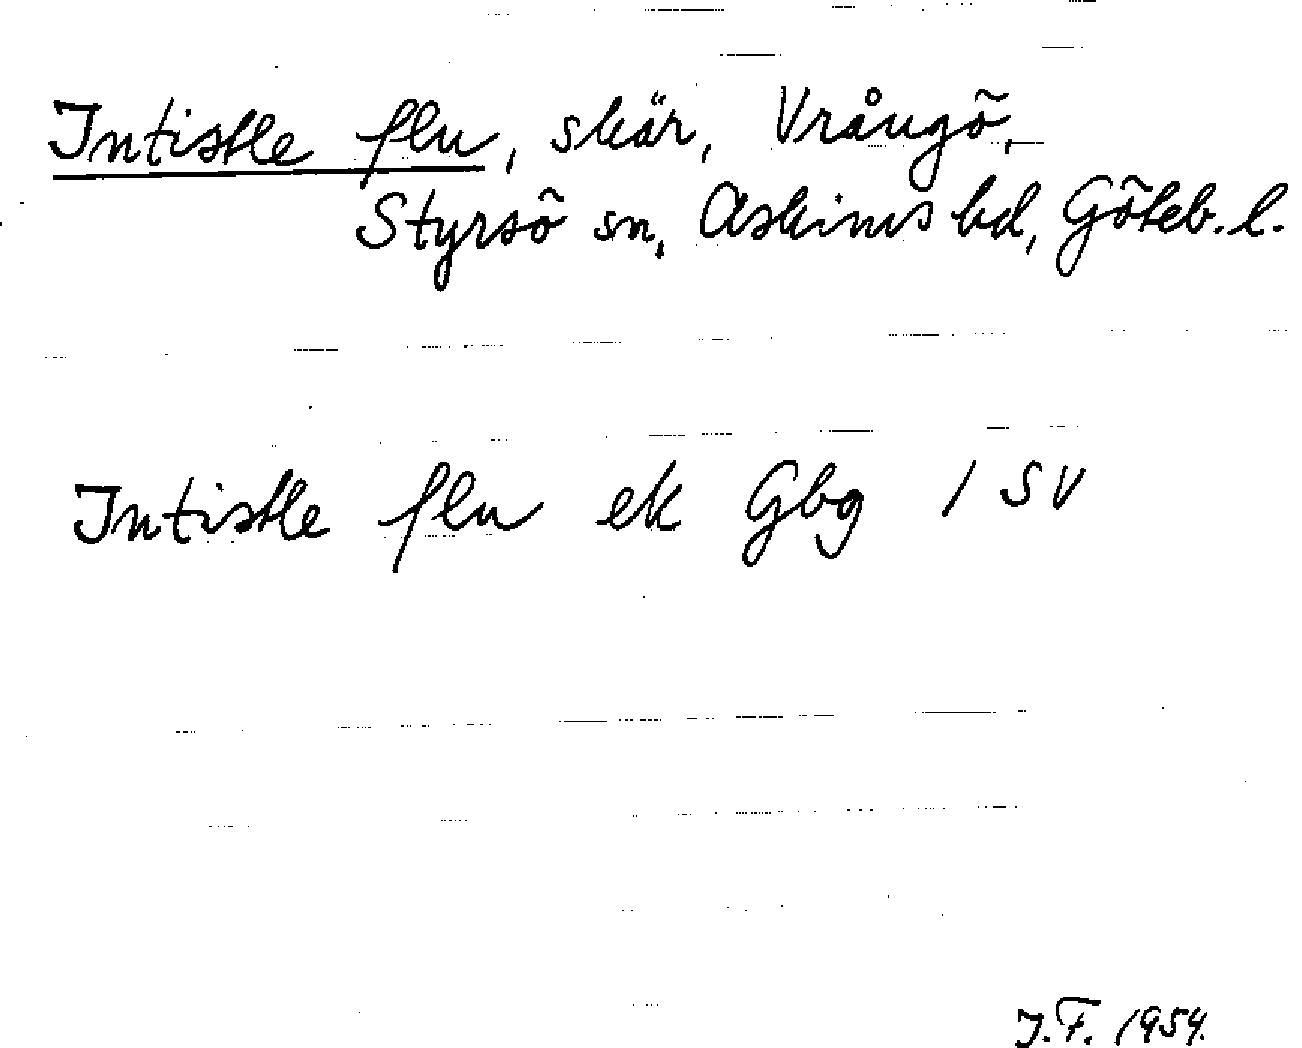 Intistle flu, skär, Vrångö,
Styrsö sn, Askims hd, Göteb. l.
Intistle flu ek Gbg 1 SV
J.F. 1954.